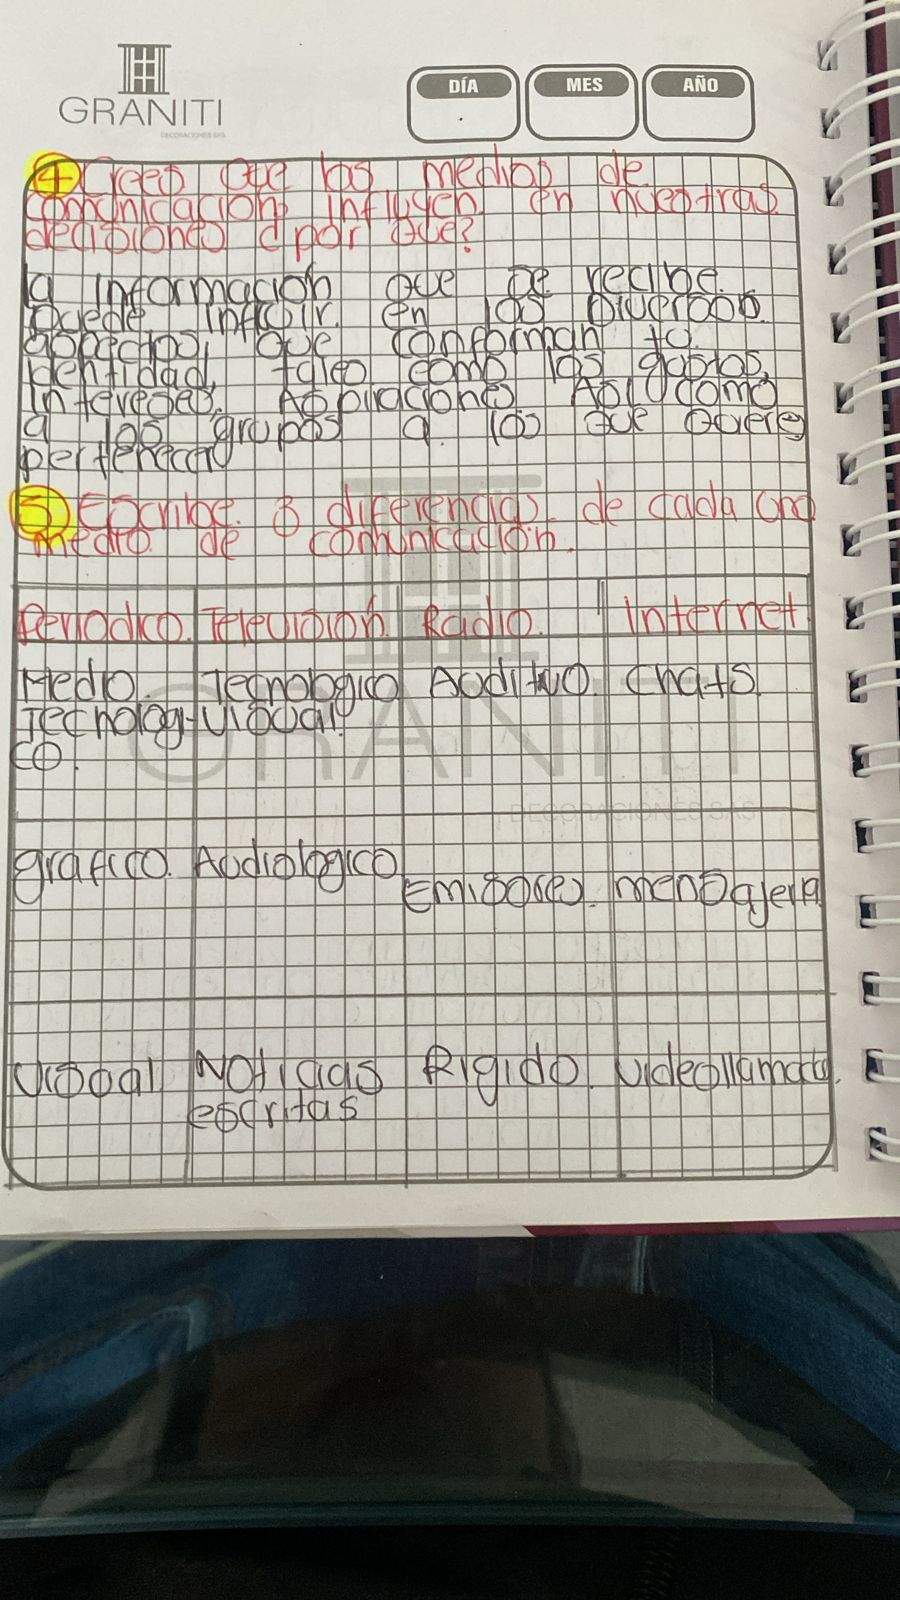 GRANITI
DECORACIONES SAS
DÍA
MES
AÑO
4 Crees Que los medios de
comunicacion influyen en nuestras
decisiones ¿por Que?
la informacion que se recibe
puede influir en los Diversos
aspectos, que conforman tu
identidad, tales como los gustos,
intereses, Aspiraciones Asi como
a los grupos a los que Quiere
pertenecer
5 Escribe 3 diferencias de cada uno
medio de comunicacion.
Periodico Television Radio Internet
Medio Tecnologico Auditivo Chats
Tecnologi-visual
co
GRANITI
DECORACIONES SAS
grafico Audiologico
Emisores mensajeria
visual Noticias Rigido videollamada
escritas